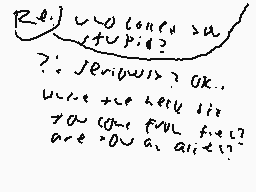 Re: who called you
stupid?
?: seriously? ok..
where the heck did
you come from then?
are you an alien??